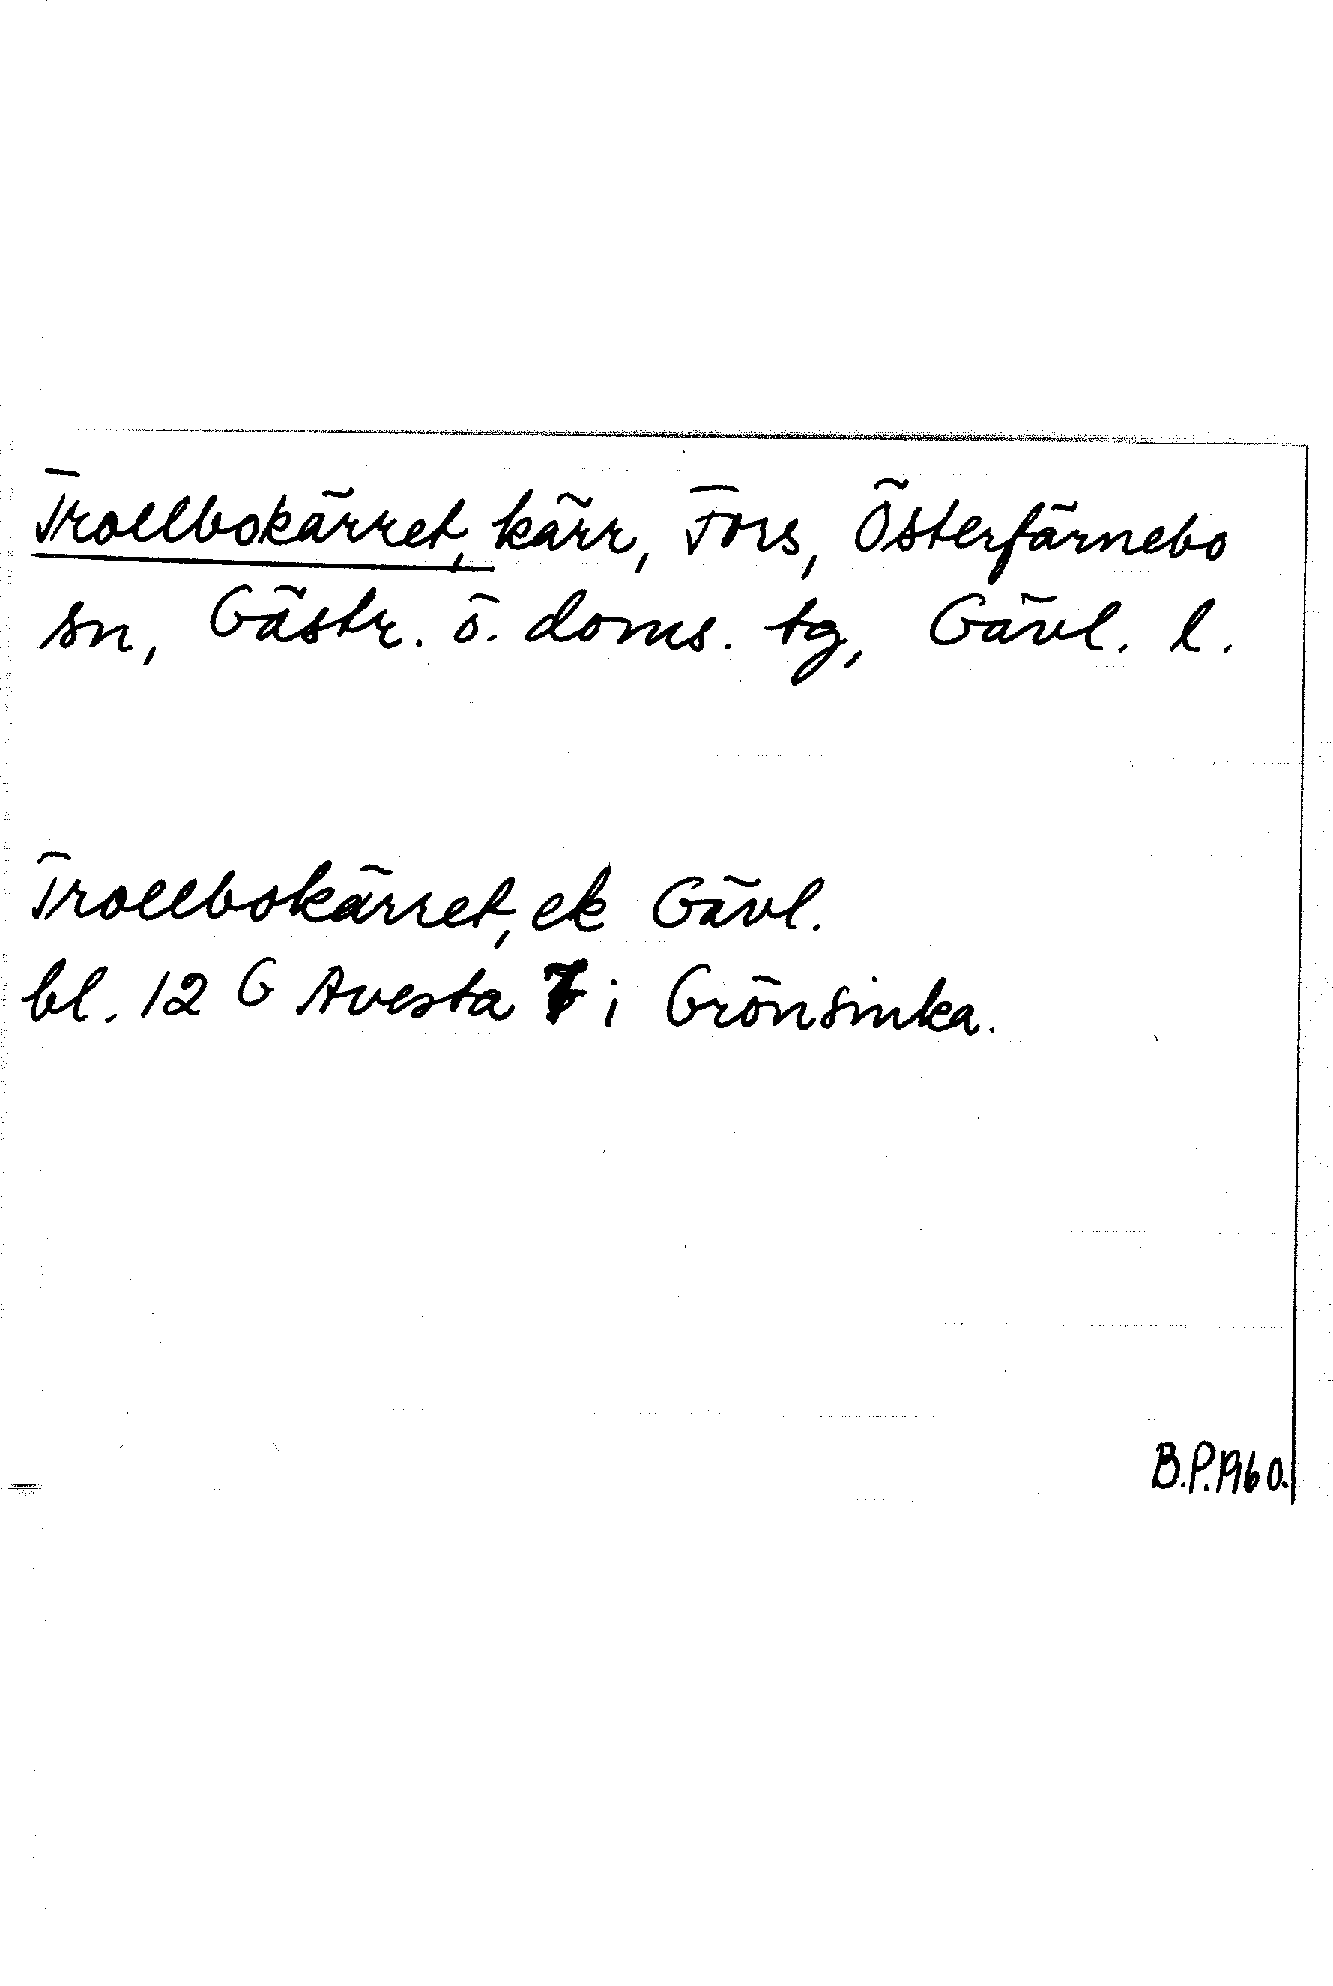 Trollbokärret, kärr, Fors, Österfärnebo
sn, Gästr. ö. doms. tg, Gävl. l.
Trollbokärret, ek Gävl.
bl. 12 G Avesta i Grönsinka.
B.P.1960.